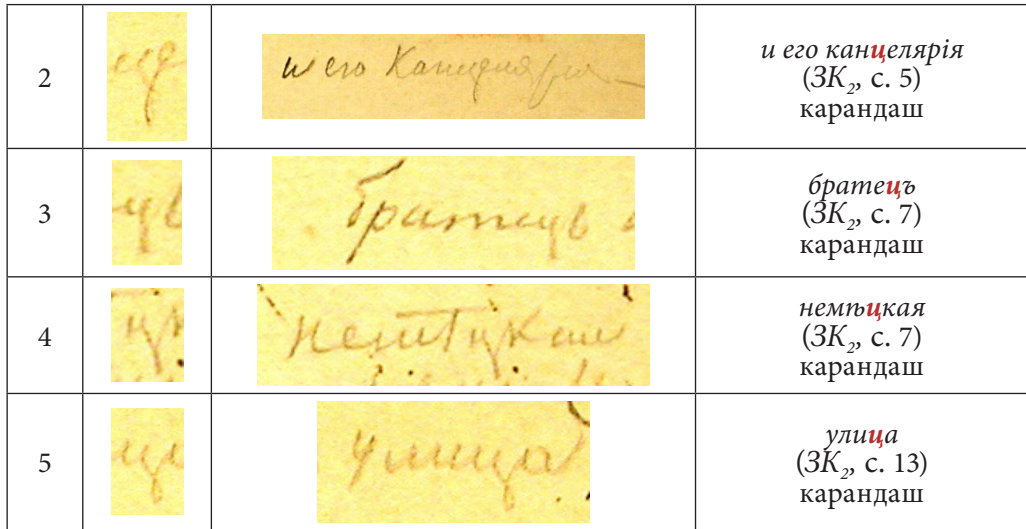 2 це и его Канцелярія и его канцелярія
(ЗК₂, с. 5)
карандаш
3 цъ братецъ братецъ
(ЗК₂, с. 7)
карандаш
4 цк немѣцкая немѣцкая
(ЗК₂, с. 7)
карандаш
5 ца улица улица
(ЗК₂, с. 13)
карандаш